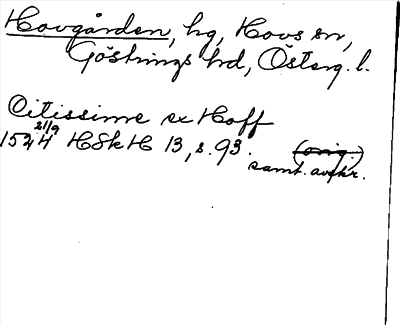 Hovgården, hg, Hovs sn,
Göstrings hd, Österg. l.
Citissime ex Hoff
1524 21/9 HSkH 13, s. 93. (orig.)
samt. avskr.